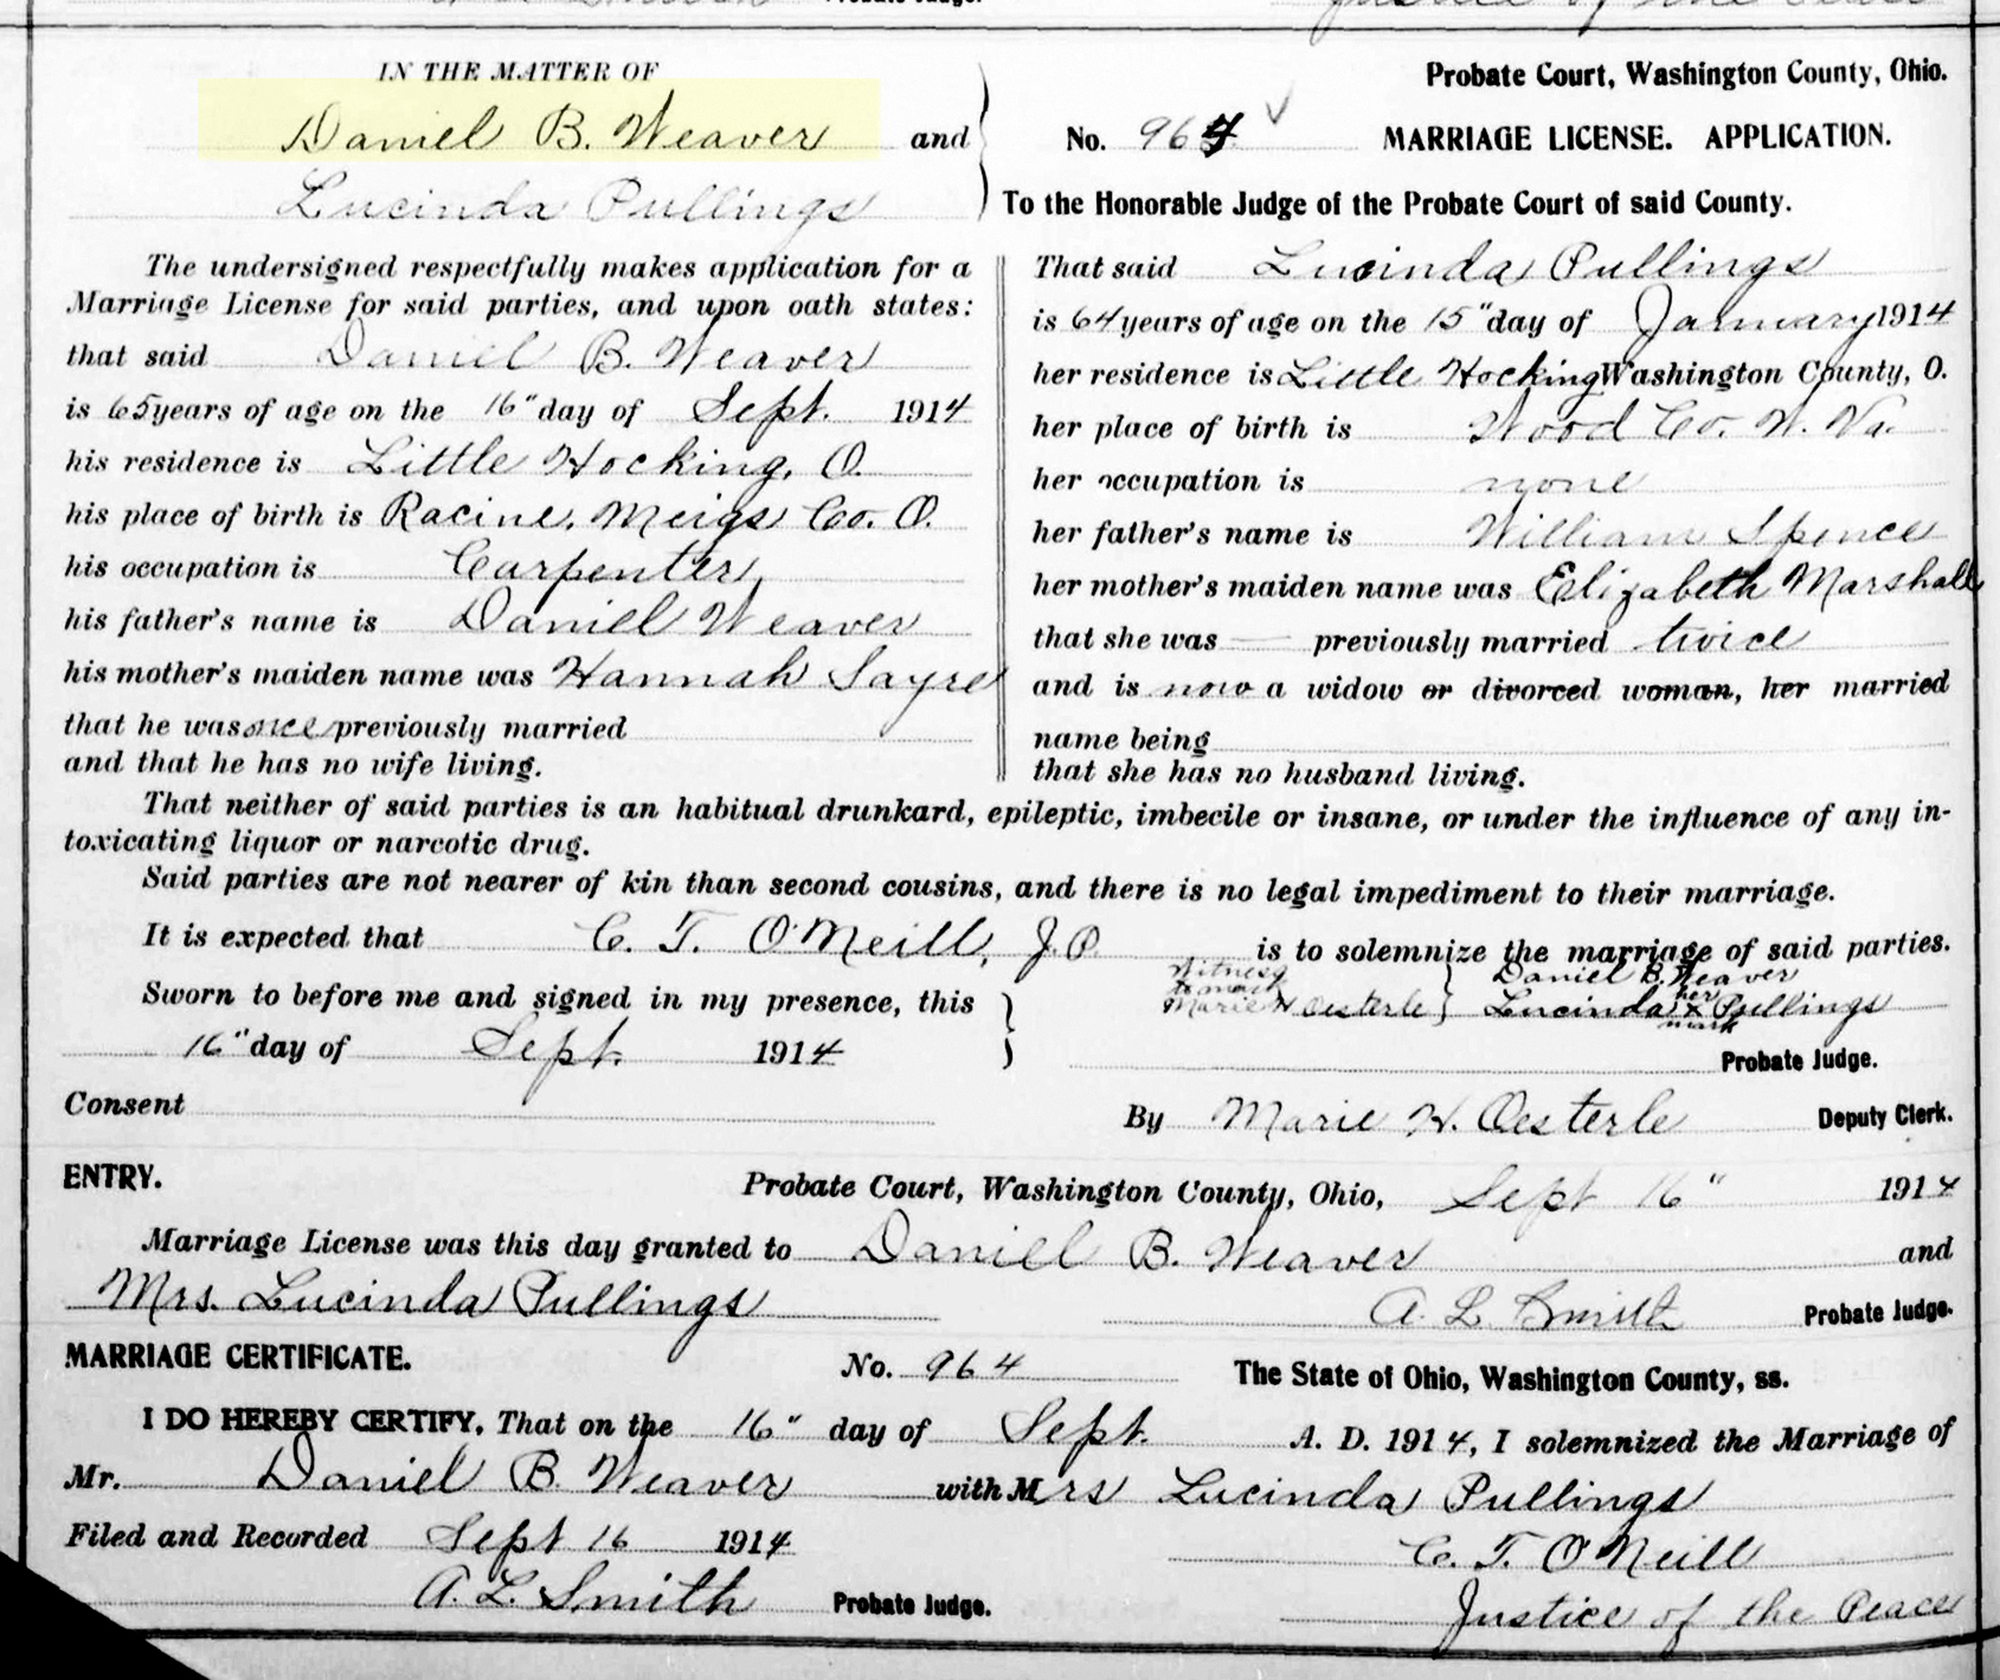 IN THE MATTER OF
Daniel B. Weaver and
Lucinda Pullings
Probate Court, Washington County, Ohio.
No. 964 MARRIAGE LICENSE. APPLICATION.
To the Honorable Judge of the Probate Court of said County.
The undersigned respectfully makes application for a
Marriage License for said parties, and upon oath states:
that said Daniel B. Weaver
is 65 years of age on the 16" day of Sept. 1914
his residence is Little Hocking, O.
his place of birth is Racine, Meigs Co. O.
his occupation is Carpenter
his father's name is Daniel Weaver
his mother's maiden name was Hannah Sayre
that he was once previously married
and that he has no wife living.
That said Lucinda Pullings
is 64 years of age on the 15" day of January 1914
her residence is Little Hocking Washington County, O.
her place of birth is Wood Co. W. Va.
her occupation is none
her father's name is William Spence
her mother's maiden name was Elizabeth Marshall
that she was — previously married twice
and is now a widow or divorced woman, her married
name being
that she has no husband living.
That neither of said parties is an habitual drunkard, epileptic, imbecile or insane, or under the influence of any in-
toxicating liquor or narcotic drug.
Said parties are not nearer of kin than second cousins, and there is no legal impediment to their marriage.
It is expected that C. T. O'Neill, J.P. is to solemnize the marriage of said parties.
Sworn to before me and signed in my presence, this
16" day of Sept. 1914
Witness
to mark
Marie H Oesterle
Daniel B. Weaver
her
Lucinda x Pullings
mark
Probate Judge.
Consent
By Marie H. Oesterle Deputy Clerk.
ENTRY. Probate Court, Washington County, Ohio, Sept 16" 1914
Marriage License was this day granted to Daniel B. Weaver and
Mrs. Lucinda Pullings A. L. Smith Probate Judge.
MARRIAGE CERTIFICATE. No. 964 The State of Ohio, Washington County, ss.
I DO HEREBY CERTIFY, That on the 16" day of Sept. A. D. 1914, I solemnized the Marriage of
Mr. Daniel B. Weaver with Mrs Lucinda Pullings
Filed and Recorded Sept 16 1914 C. T. O'Neill
A. L. Smith Probate Judge. Justice of the Peace